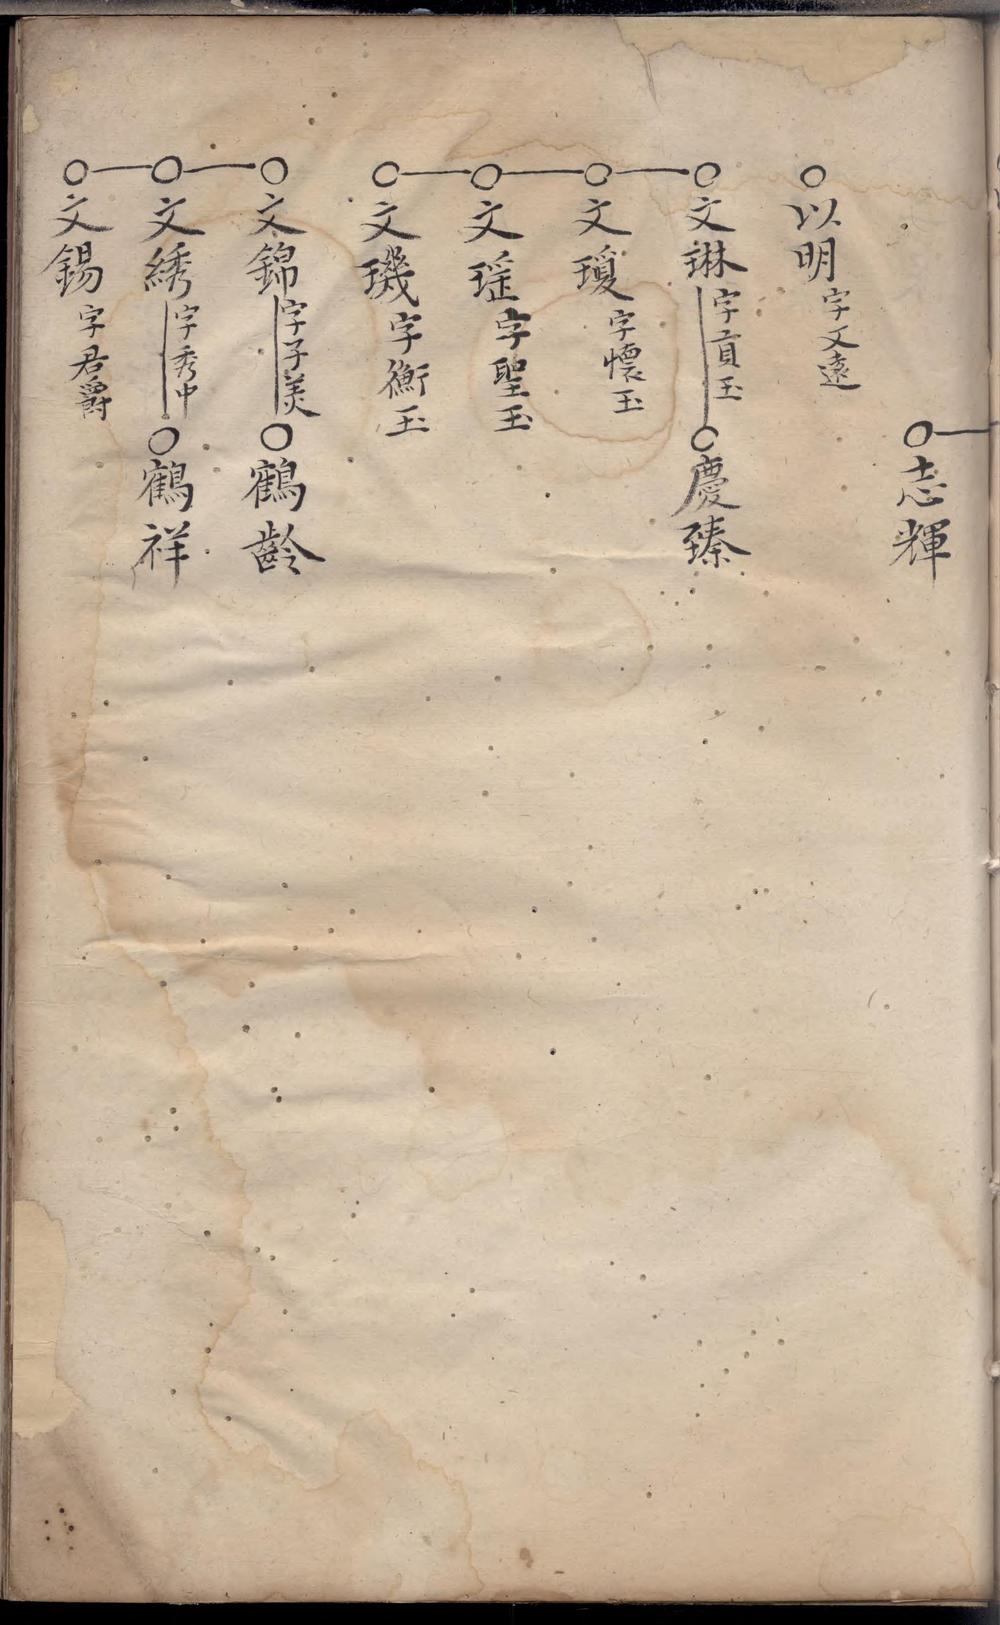 志輝
以明 字文遠
文琳 字貢玉
慶臻
文瓊 字懷玉
文瑶 字聖玉
文璣 字衡玉
文錦 字子美
鶴齡
文綉 字秀中
鶴祥
文錫 字君爵